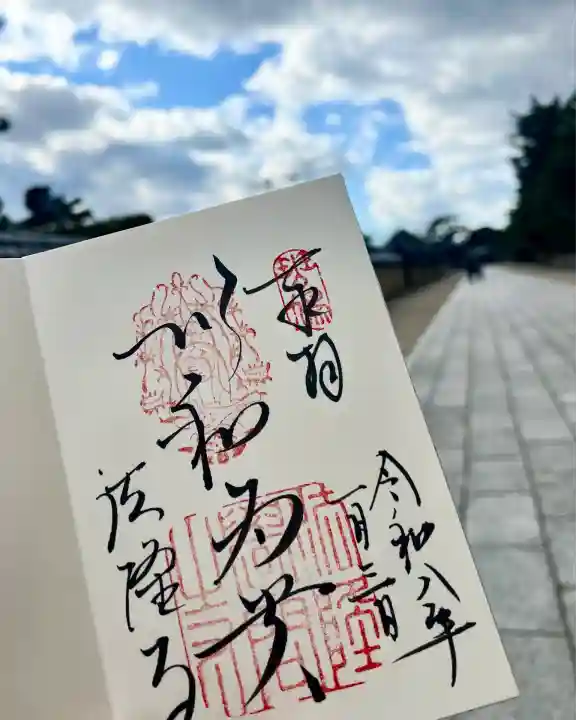 奉拝
令和八年
一月二日
以和為貴
法隆寺